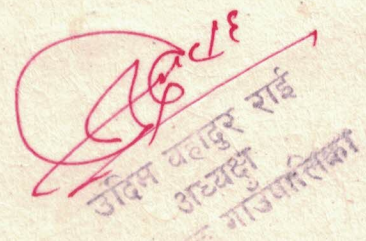 उदिम वहादुर राई
अध्यक्ष
गाउँपालिका